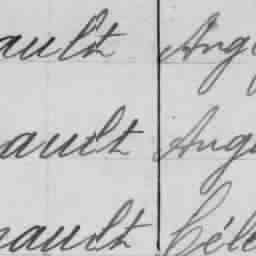 ault Ang
ault Ang
nault Céle